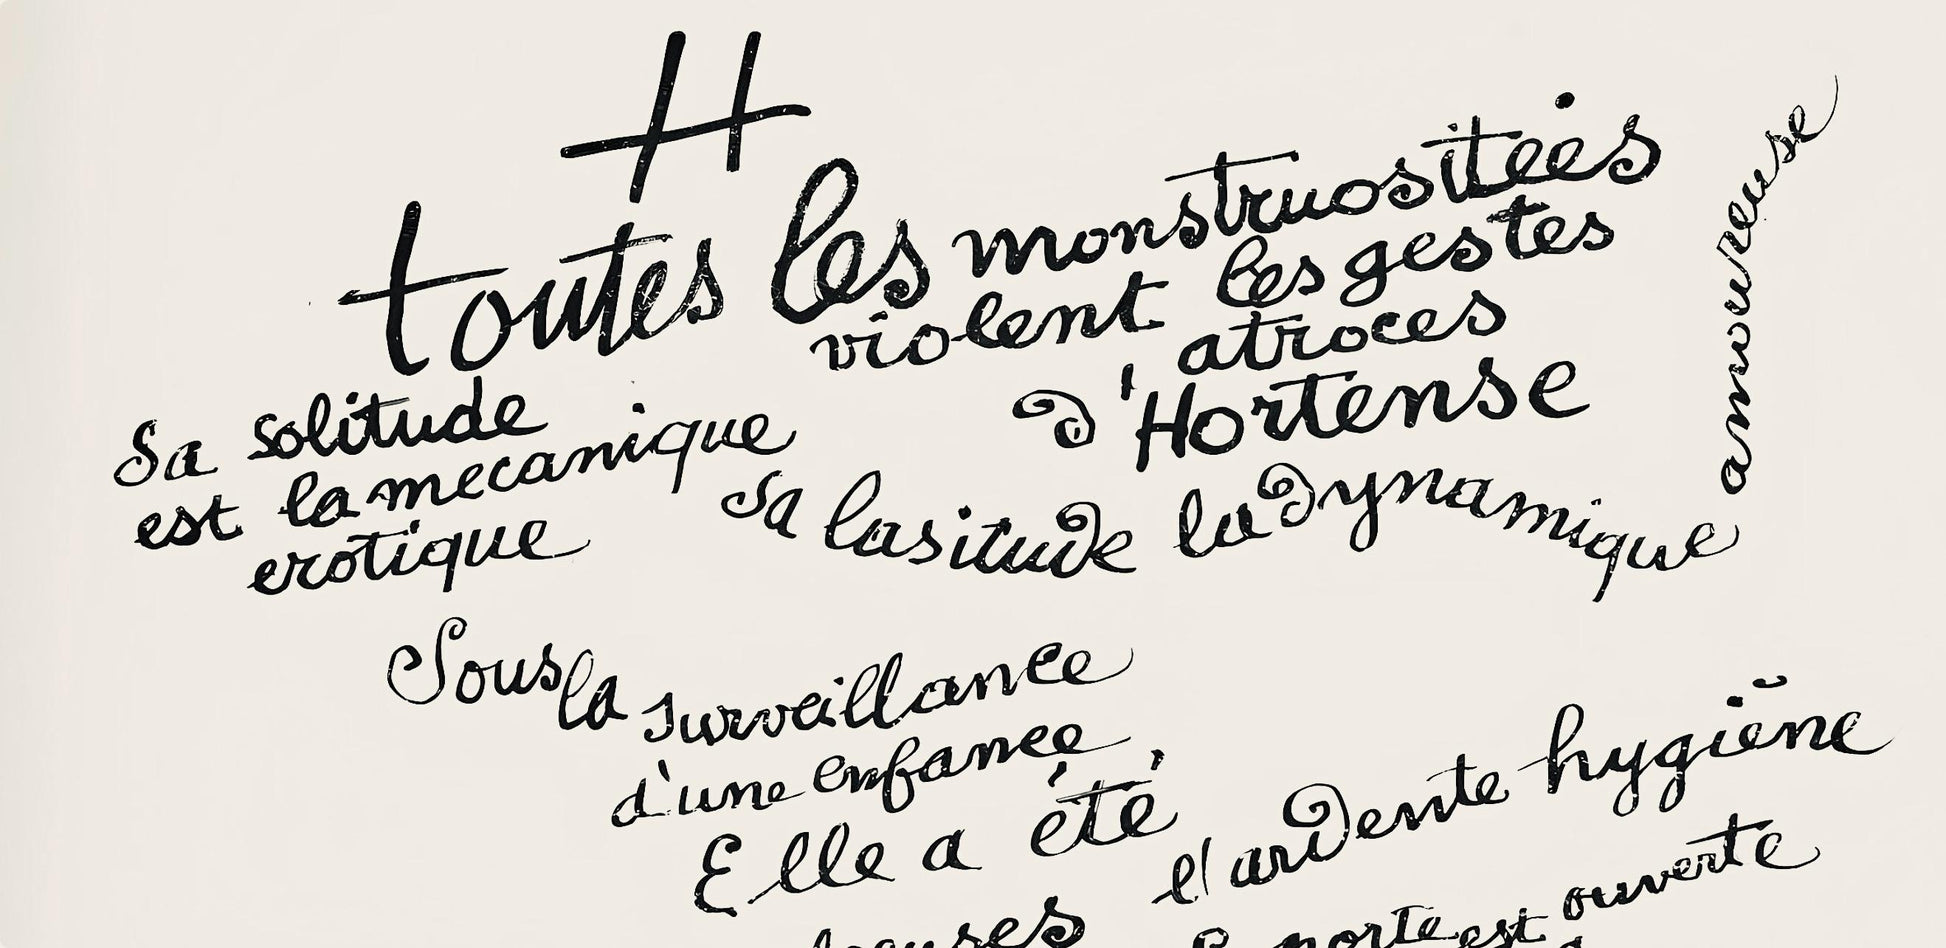 H
toutes les monstruositées
violent les gestes
atroces
d'Hortense
Sa solitude
est la mecanique
erotique
Sa lasitude la dynamique
amoureuse
Sous la surveillance
d'une enfance
Elle a été
l'ardente hygiène
porte est ouverte